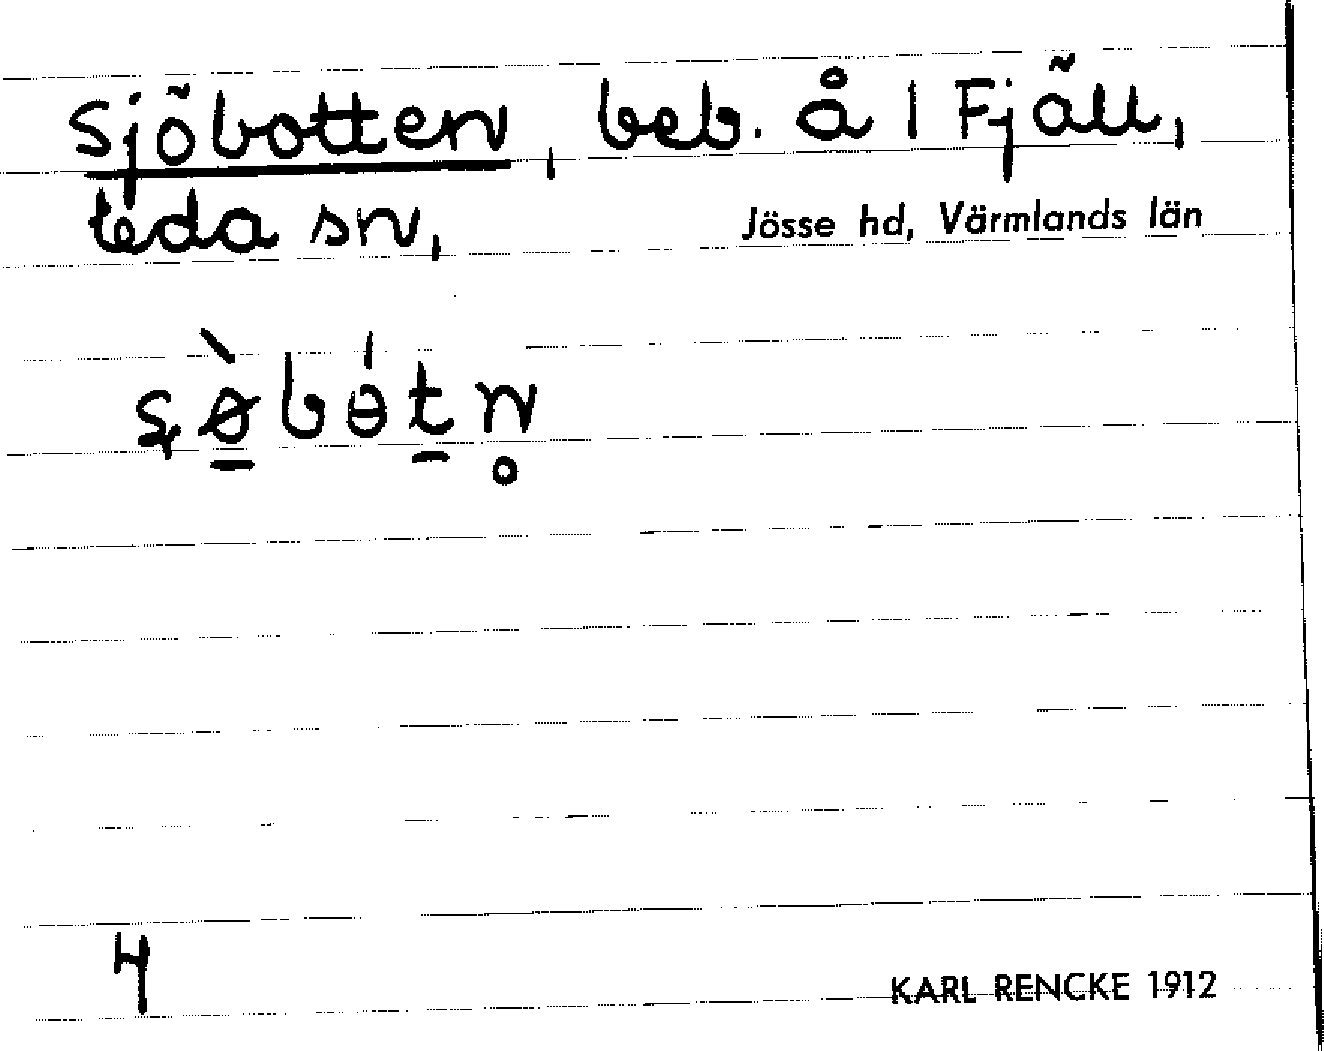 Sjöbotten, beb. å 1 Fjäll,
Eda sn, Jösse hd, Värmlands län
4
KARL RENCKE 1912